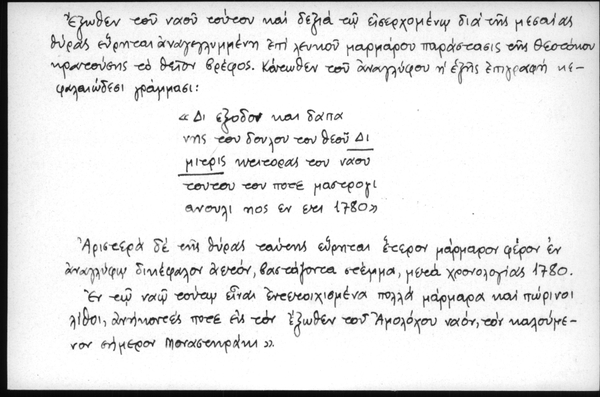 Ἔξωθεν τοῦ ναοῦ τούτου καὶ δεξιά τῷ εἰσερχομένῳ διά τῆς μεσαίας
θύρας εὕρηται ἀναγεγλυμμένη ἐπί λευκοῦ μαρμάρου παράστασις τῆς Θεοτόκου
κρατούσης τό θεῖον βρέφος. Κάτωθεν τοῦ ἀναγλύφου ἡ ἑξῆς ἐπιγραφή κε-
φαλαιώδεσι γράμμασι:
«Δι εξοδον και δαπα
νης του δουλου του θεοῦ Δι
μιτρις κτιτορας του ναου
τουτου του ποτε μαστρογι
ανουλι ηος εν ετι 1780»
Ἀριστερά δέ τῆς θύρας ταύτης εὕρηται ἕτερον μάρμαρον φέρον ἐν
ἀναγλύφῳ δικέφαλον ἀετόν, βαστάζοντα στέμμα, μετά χρονολογίας 1780.
Ἐν τῷ ναῷ τούτῳ εἶναι ἐντετοιχισμένα πολλά μάρμαρα καί πώρινοι
λίθοι, ἀνήκοντές ποτε εἰς τόν ἔξωθεν τοῦ Ἀμολόχου ναόν, τόν καλούμε-
νον σήμερον Μοναστηράκι».